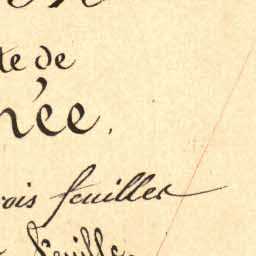 te de
née.
ois feuilles
feuille